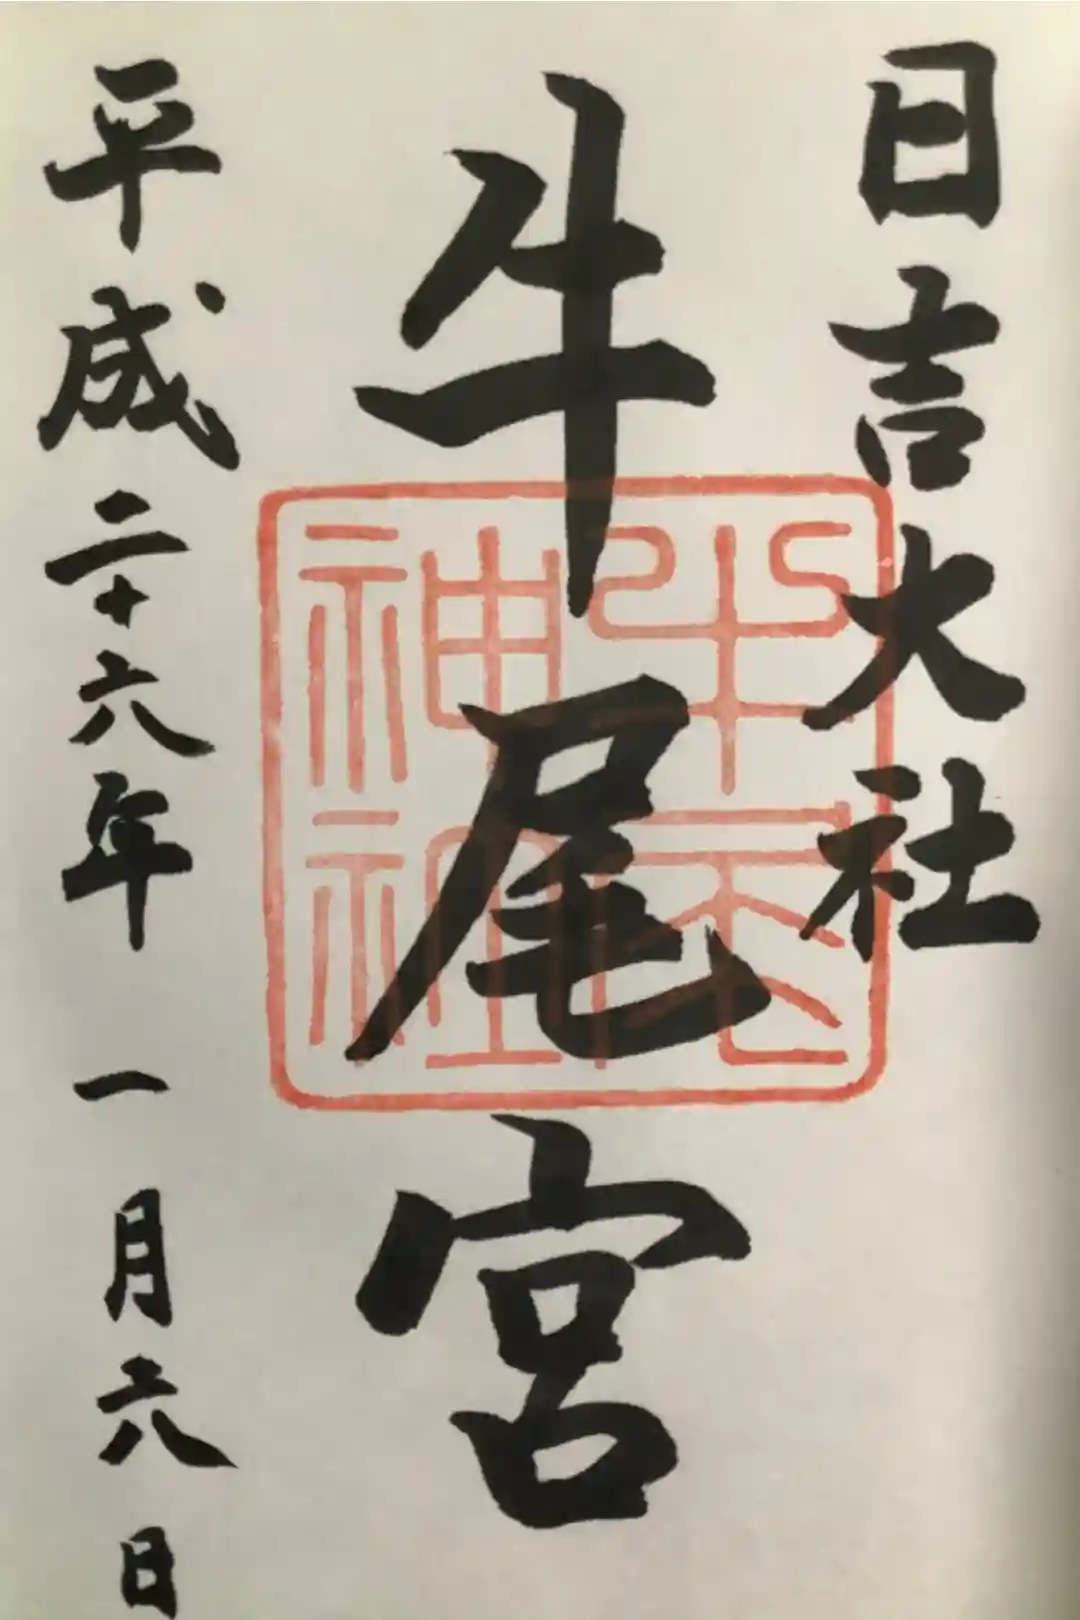 日吉大社
牛尾宮
牛尾
神社
平成二十六年一月六日